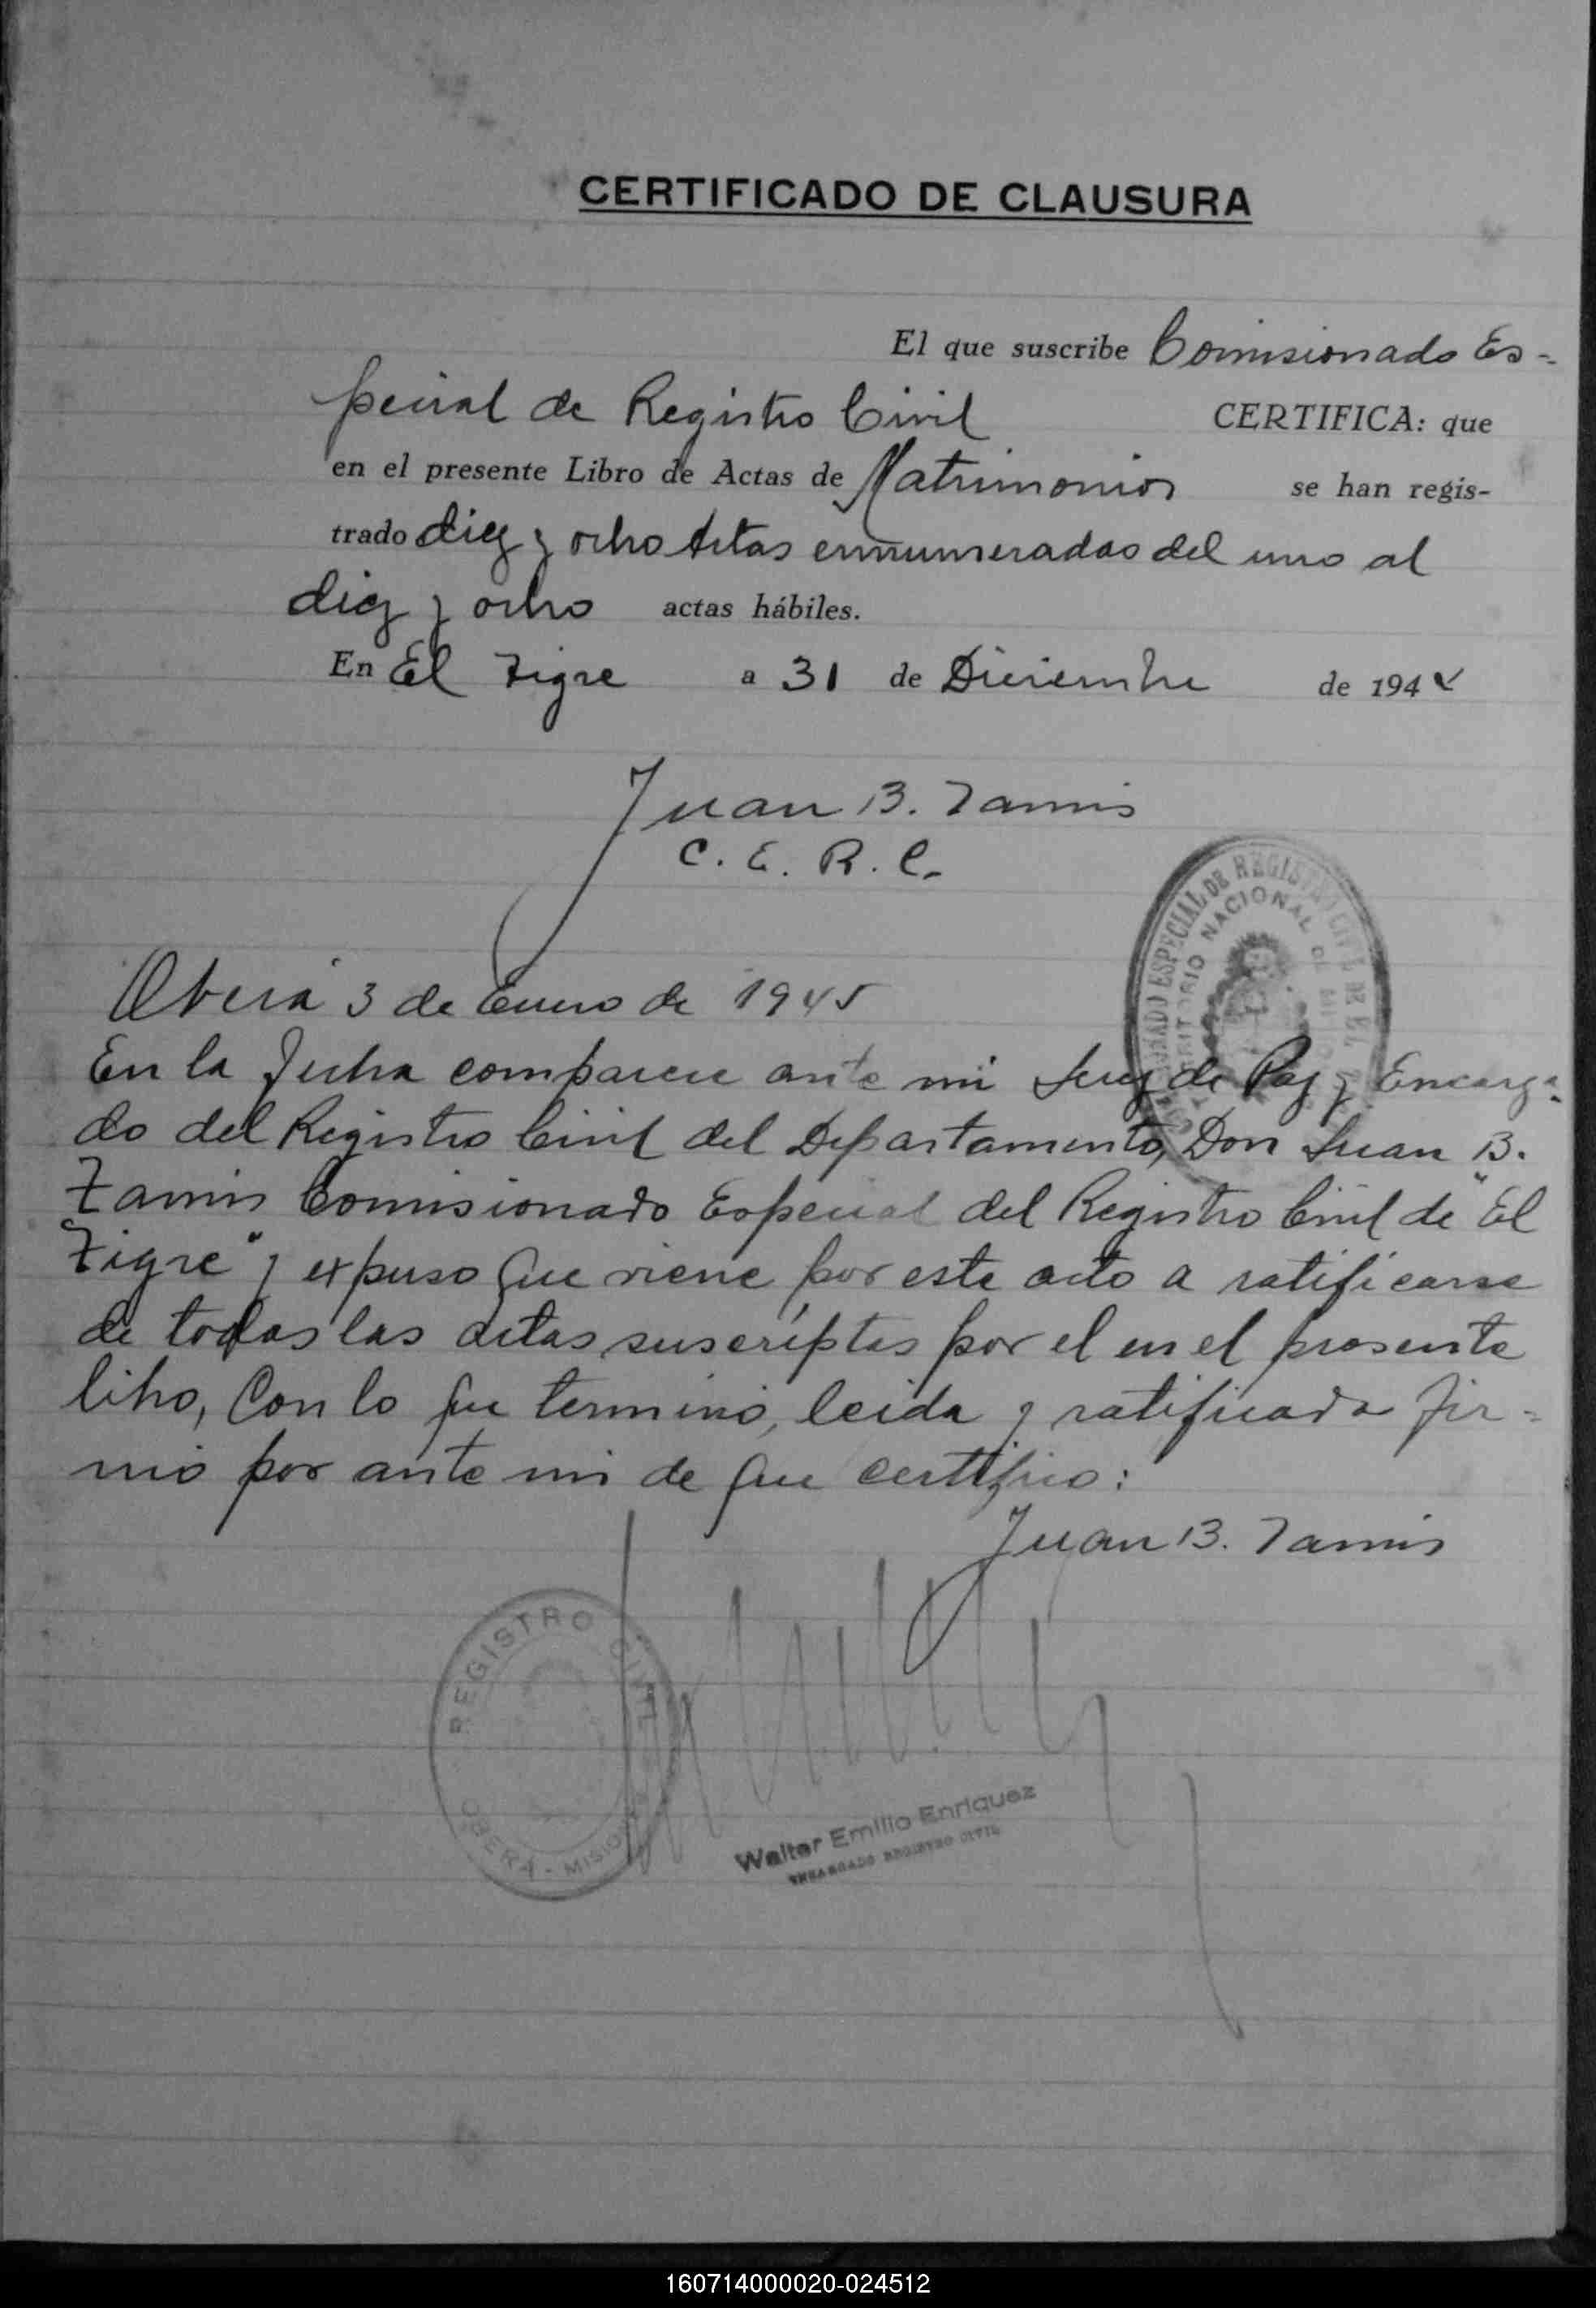 CERTIFICADO DE CLAUSURA
El que suscribe Comisionado Es=
pecial de Registro Civil CERTIFICA: que
en el presente Libro de Actas de Matrimonios se han regis-
trado diez y ocho Actas enumeradas del uno al
diez y ocho actas hábiles.
En El Tigre a 31 de Diciembre de 1944
Juan B. Tamis
C. E. R. C.
COMISIONADO ESPECIAL DE REGISTRO CIVIL DE EL
TERRITORIO NACIONAL DE
Oberá 3 de Enero de 1945
En la fecha comparece ante mi Juez de Paz y Encarga=
do del Registro Civil del Departamento, Don Juan B.
Tamis Comisionado Especial del Registro Civil de "El
Tigre" y expuso que viene por este acto a ratificarse
de todas las actas suscriptas por el en el presente
libro, Con lo que termino, leida y ratificada fir=
mó por ante mi de que certifico:
Juan B. Tamis
REGISTRO CIVIL
OBERA - MISIONES
Walter Emilio Enriquez
ENCARGADO REGISTRO CIVIL
160714000020-024512